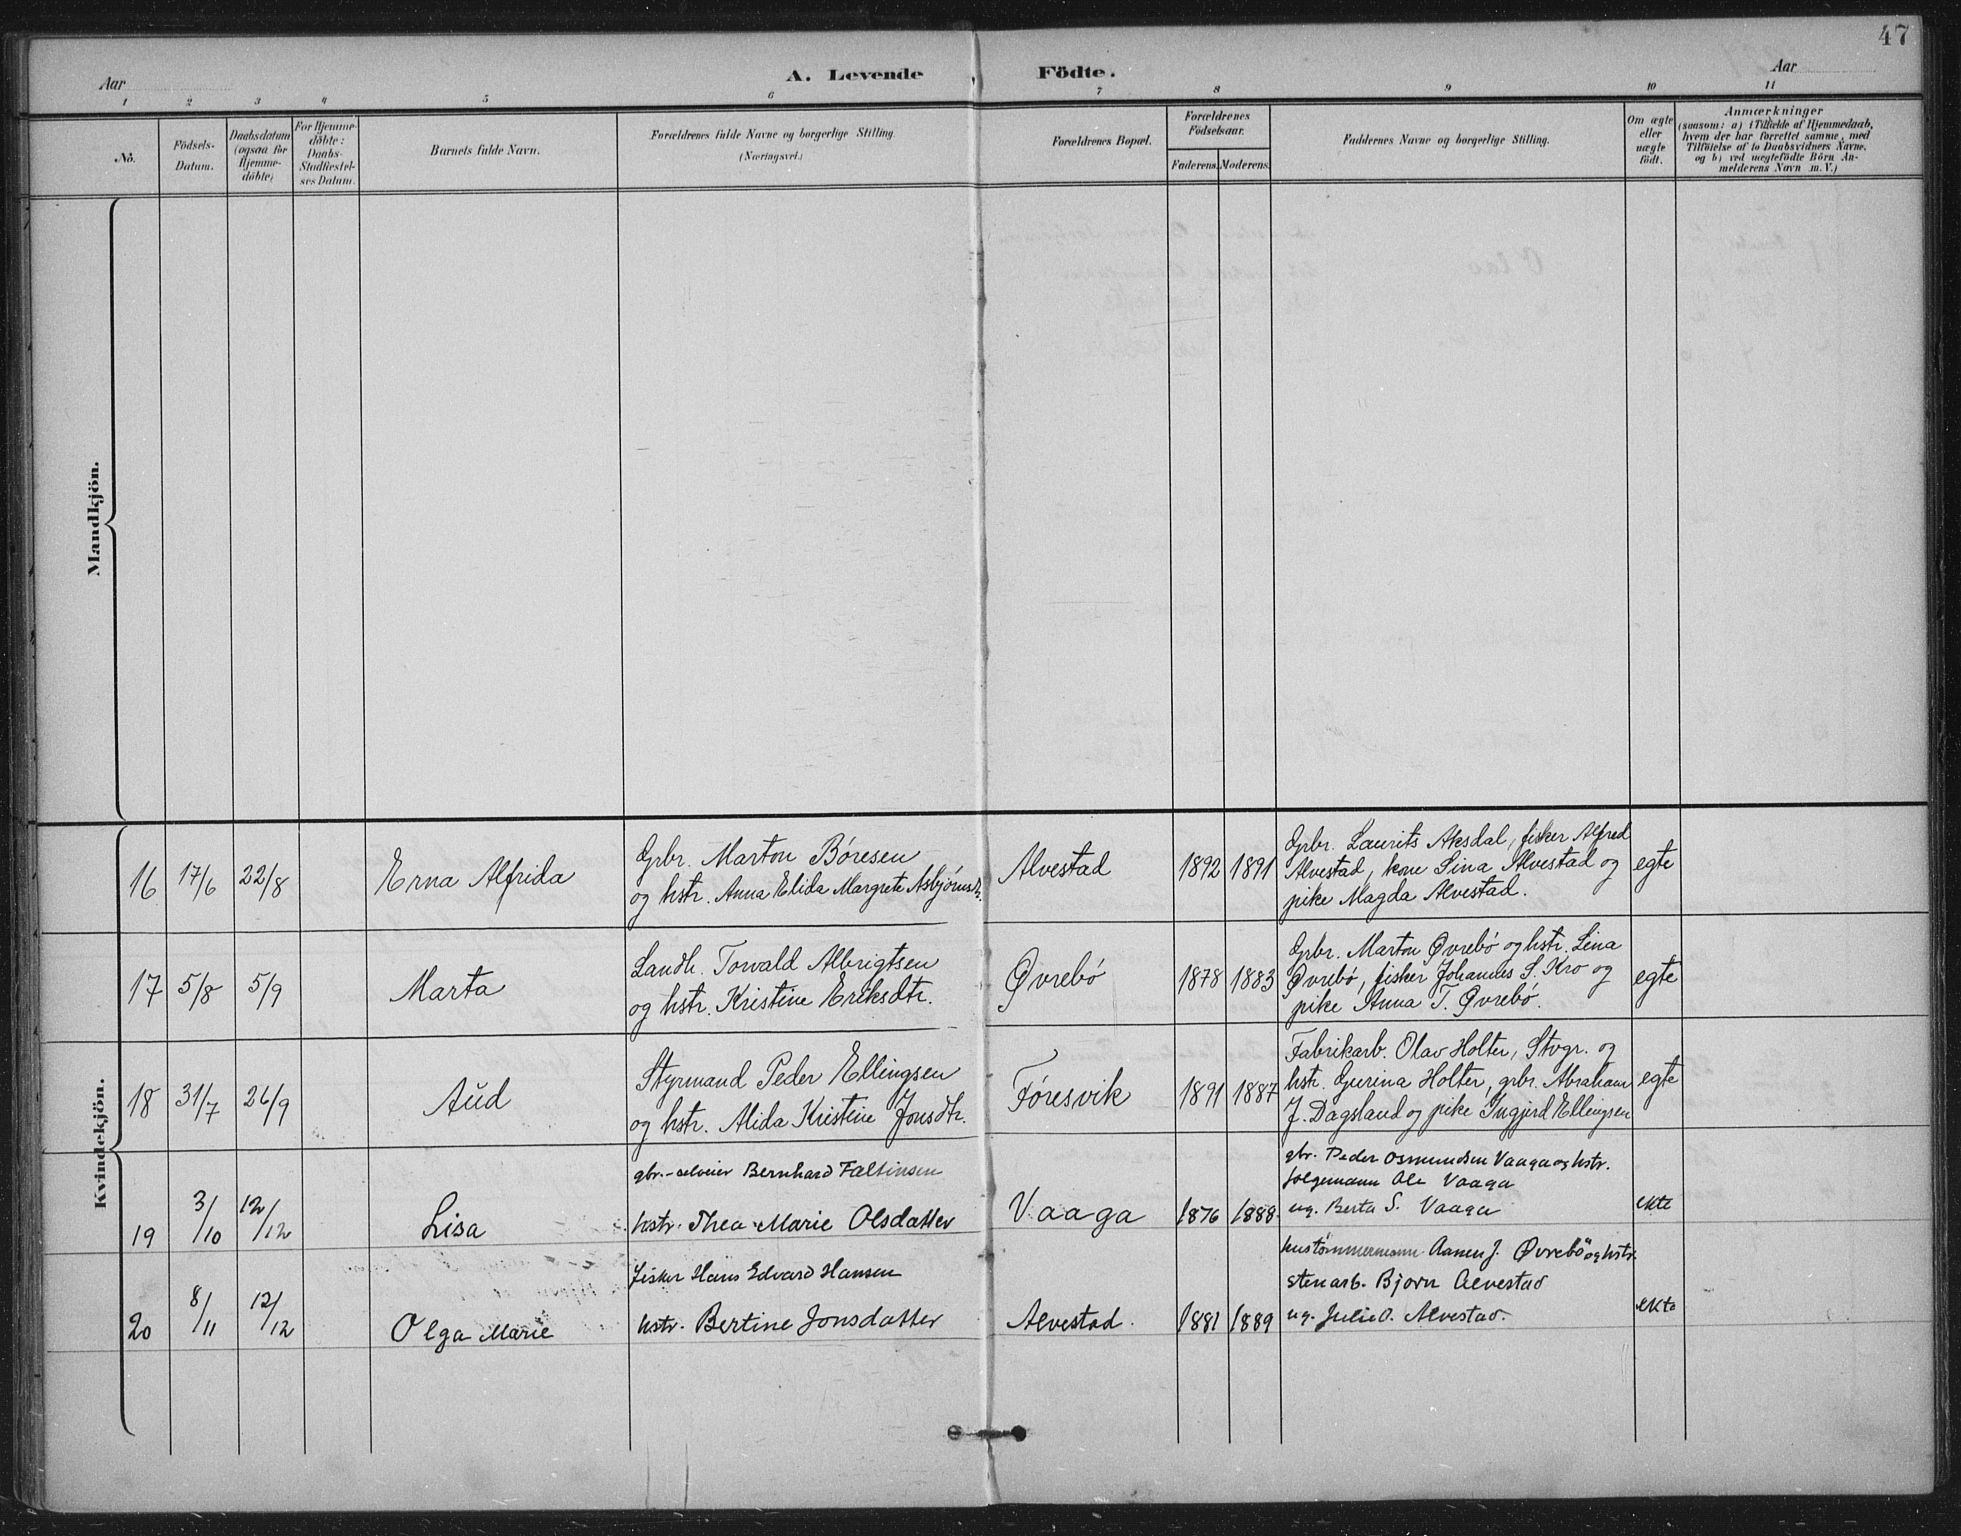 47
A. Levende Födte.
Aar
Aar
1 2 3 4 5 6 7 8 9 10 11
No.
Födsels-
Datum.
Daabsdatum
(ogsaa for
Hjemme-
döbte)
For Hjemme-
döbte:
Daabs-
Stadfæstel-
ses Datum.
Barnets fulde Navn.
Forældrenes fulde Navne og borgerlige Stilling.
(Næringsvei.)
Forældrenes Bopæl.
Forældrenes
Födselsaar.
Faderens. Moderens.
Faddernes Navne og borgerlige Stilling.
Om ægte
eller
uægte
födt.
Anmærkninger
(saasom: a) i Tilfælde af Hjemmedaab,
hvem der har forrettet samme, med
Tilföielse af to Daabsvidners Navne,
og b) ved uægtefödte Börn An-
melderens Navn m. V.)
Mandkjön.
Kvindekjön.
16 17/6 22/8 Erna Alfrida
Grbr. Marton Børesen
og hstr. Anna Elida Margrete Asbjørnsdt.
Alvestad 1892 1891
Grbr. Laurits Aksdal, fisker Alfred
Alvestad, kone Lina Alvestad og
pike Magda Alvestad.
egte
17 5/8 5/9 Marta
Landh. Torvald Albrigtsen
og hstr. Kristine Eriksdtr.
Øvrebö 1878 1883
Grbr. Marton Øvrebö og hstr. Lina
Øvrebö, fisker Johannes S. Kro og
pike Anna T. Øvrebö.
egte
18 31/7 26/9 Aud
Styrmand Peder Ellingsen
og hstr. Alida Kristine Jonsdtr.
Føresvik 1891 1887
Fabrikarb. Olav Holter, Stvgr. og
hstr. Gurina Holter, grbr. Abraham
J. Dagsland og pike Ingjerd Ellingsen
egte
19 3/10 12/12 Lisa
gbr.-selveier Bernhard Faltinsen
hstr. Thea Marie Olsdatter
Vaaga 1876 1888
gbr. Peder Osmundsen Vaaga og hstr.
følgemann Ole Vaaga
ug. Berta S. Vaaga
ekte
20 8/11 12/12 Olga Marie
fisker Hans Edvard Hansen
hstr. Bertine Jonsdatter
Alvestad. 1881 1889
hustømmermann Aanen J. Øvrebö og hstr.
stenarb. Bjorn Alvestad
ug. Julie O. Alvestad.
ekte